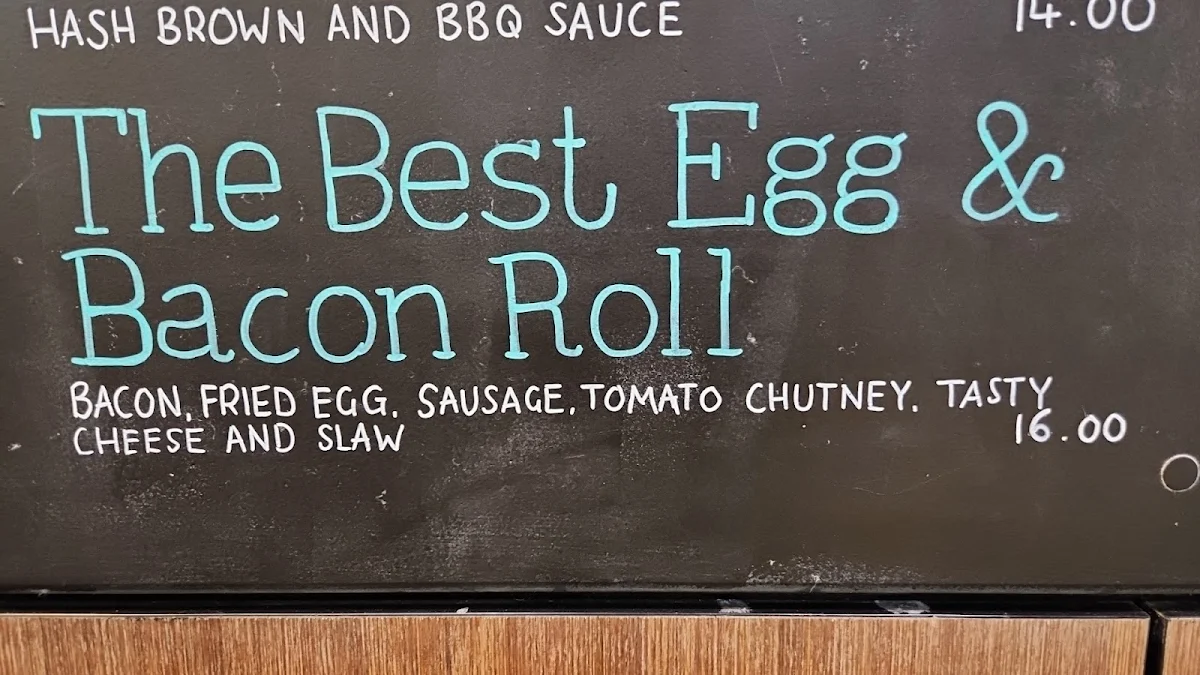 HASH BROWN AND BBQ SAUCE 14.00
The Best Egg &
Bacon Roll
BACON, FRIED EGG, SAUSAGE, TOMATO CHUTNEY, TASTY
CHEESE AND SLAW 16.00